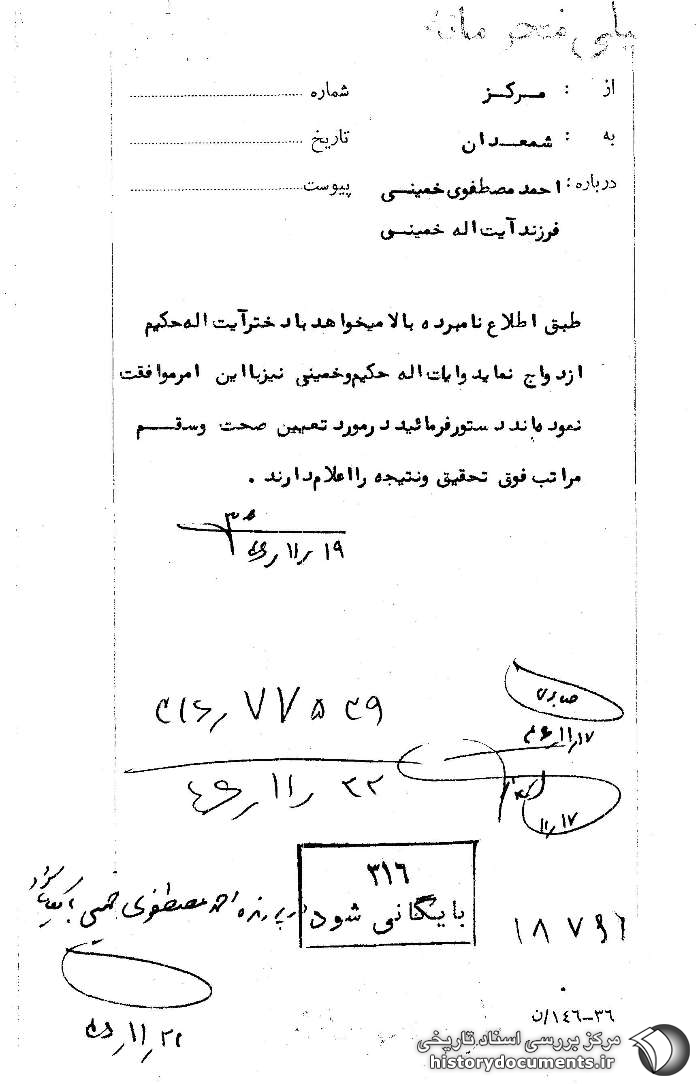 از : مرکز شماره
به : شمعدان تاریخ
درباره : احمد مصطفوی خمینی پیوست
فرزند آیت اله خمینی
طبق اطلاع نامبرده بالا میخواهد با دختر آیت اله حکیم
ازدواج نماید و ایات اله حکیم و خمینی نیز با این امر موافقت
نموده‌اند دستور فرمائید در مورد تعیین صحت و سقم
مراتب فوق تحقیق و نتیجه را اعلام دارند .
۱۹ ر ۱۱ ر ۴۶
صابری
۴۶٫۱۱٫۱۷
۱۱٫۱۷
۲۲ ر ۱۱ ر ۴۶
۳۱۶
بایگانی شود
در پرونده احمد مصطفوی خمینی بایگانی شود
۱۸۷۹۶
۴۶ ر ۱۱ ر ۲۲
۳۶-۱۴۶/ن
مرکز بررسی اسناد تاریخی
historydocuments.ir